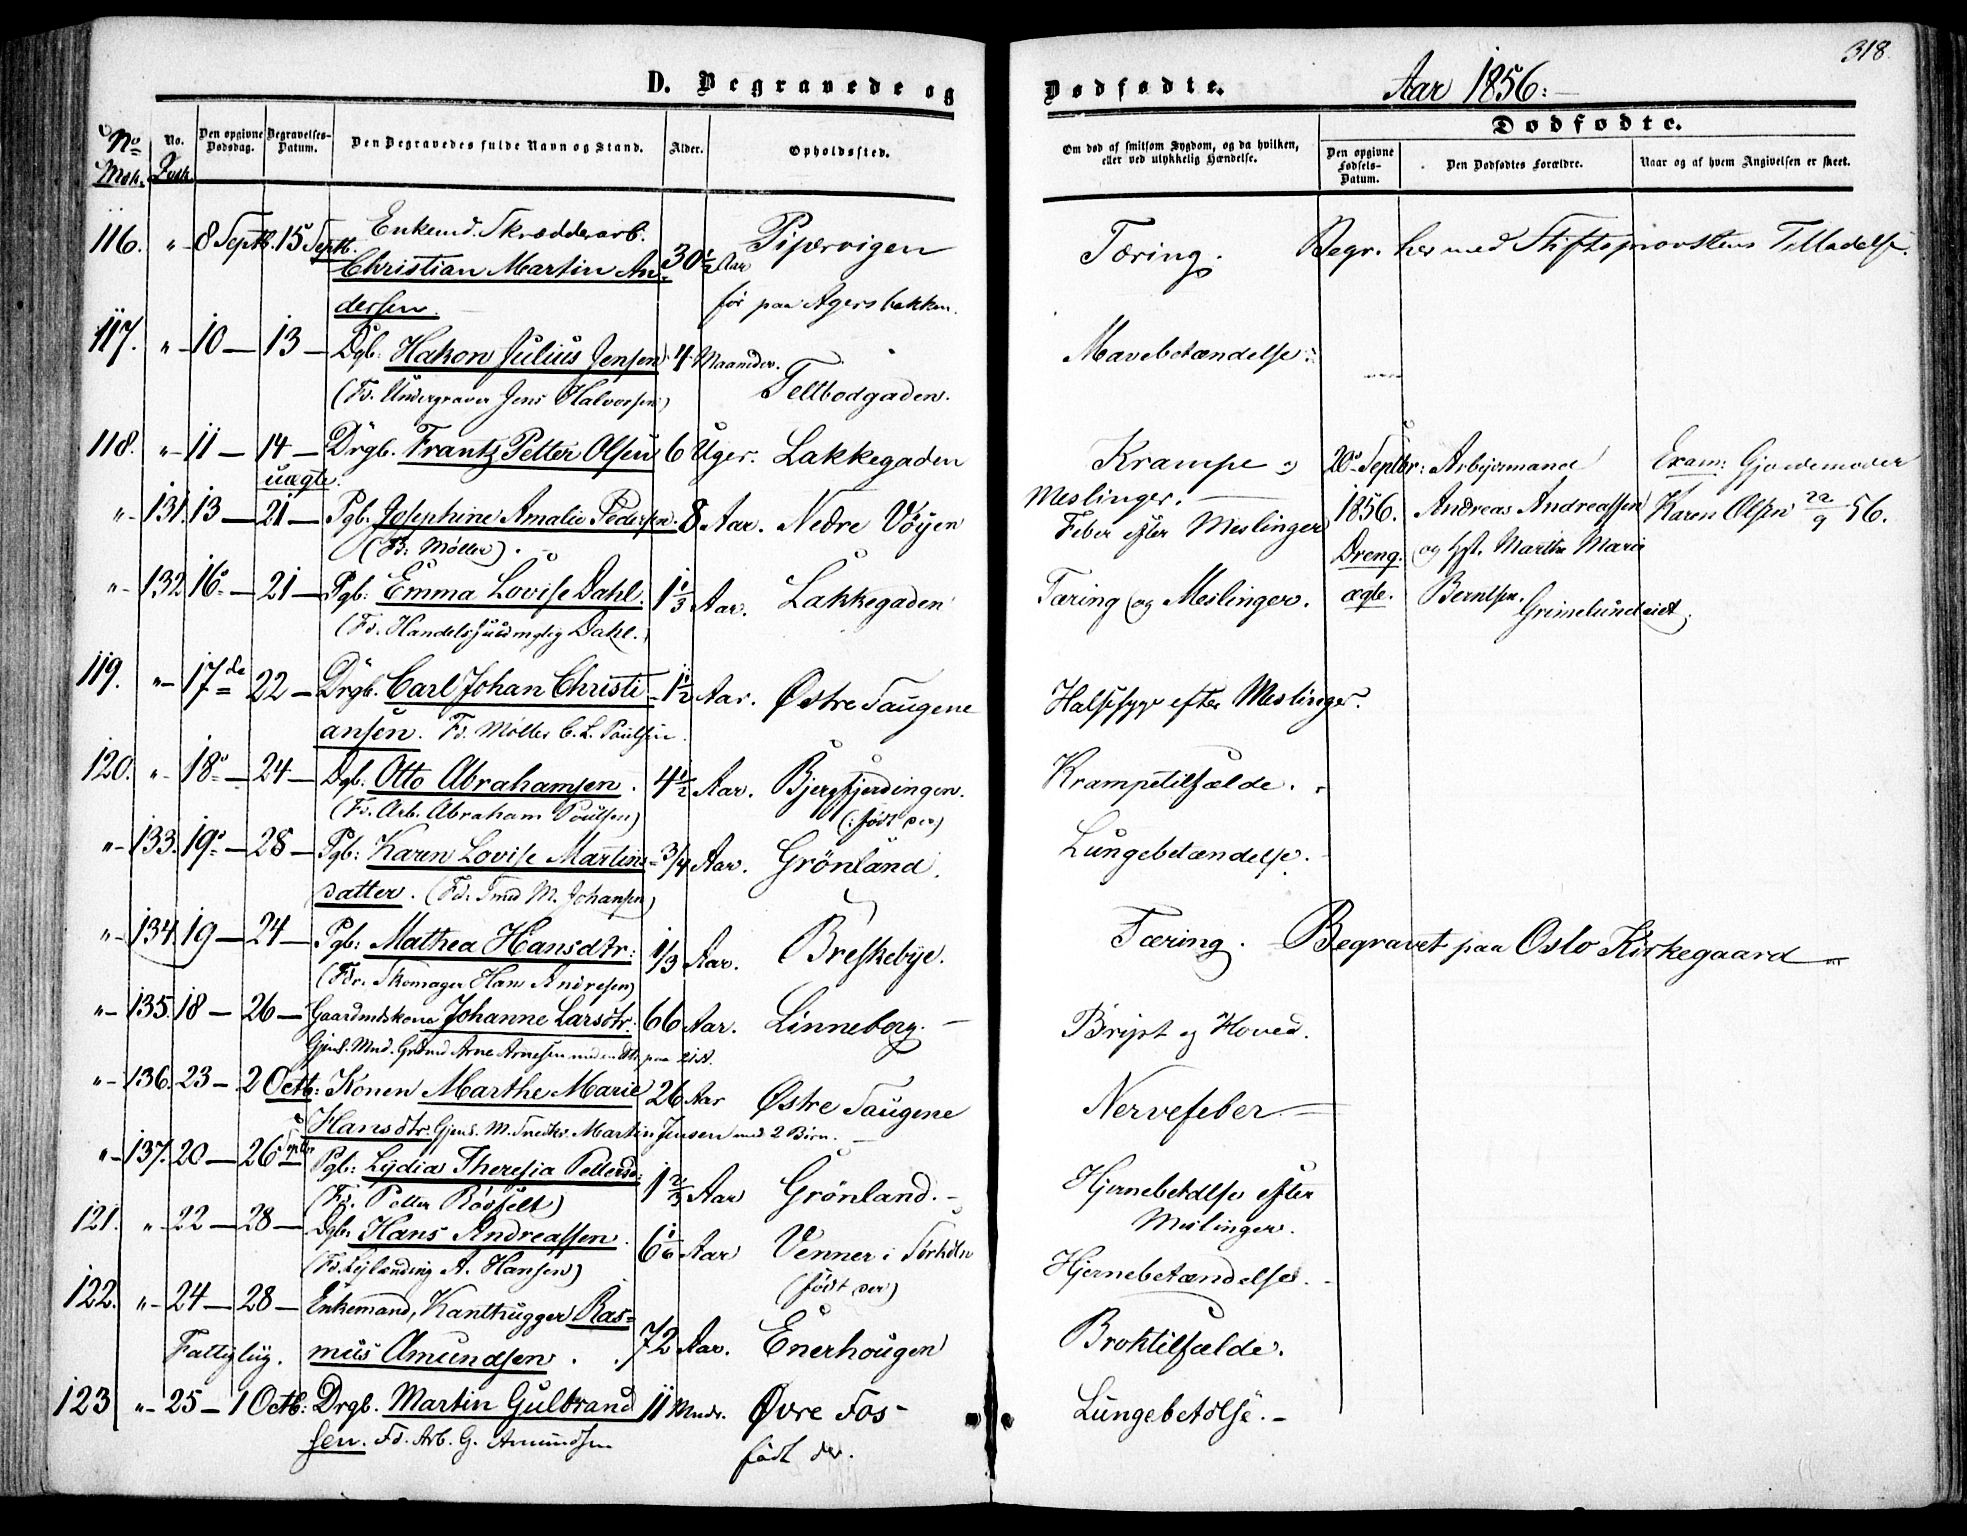 318.
D. Begravede og
Dødfødte.
Aar 1856.
Dødfødte.
No Msk.
No. Qvsk.
Den opgivne Dødsdag.
Begravelses-Datum.
Den Begravedes fulde Navn og Stand.
Alder.
Opholdssted.
Om død af smitsom Sygdom, og da hvilken, eller ved ulykkelig Hændelse.
Den opgivne Fødsels-Datum.
Den Dødfødtes Forældre.
Naar og af hvem Angivelsen er skeet.
116. " 8 Septb. 15 Septb. Enkemd. Skrædderarb. Christian Martin An-
dersen. 30 1/2 Aar Pipervigen
før paa Agersbakken.
Tæring. Begr. her med Stiftsprovstens Tilladelse.
117. " 10 — 13 — Dgb: Hakon Julius Jensen 4 Maaneder.
(Fd. Undergraver Jens Halvorsen) Tellbodgaden.
Mavebetændelse.
118. " 11 — 14 — Drgb. Frantz Petter Olsen 6 Uger. Lakkegaden
uægte.
Krampe og
Meslinger.
" 131. 13 — 21 — Pgb. Josephine Amalie Pedersen 8 Aar. Nedre Vöyen
(Fd. Møller).
Feber efter Meslinger
20 Septbr: 1856. Dreng. ægte.
Arbejdsmand
Andreas Andreassen
og Hst. Marthe Marie
Berntsen. Grimelundeiet.
Exam: Gjordemoder
Karen Olsen 22/9 56.
" 132 16 — 21 — Pgb: Emma Lovise Dahl. 1 1/3 Aar. Lakkegaden
(Fd. Handelsfuldmægtig Dahl.)
Tæring og Meslinger.
119. " 17de 22 — Drgb. Carl Johan Christi-
ansen. Fd. Møller C. L. Poulsen. 1 1/2 Aar. Østre Saugene
Halssyge efter Meslinger.
120. " 18 — 24 — Dgb: Otto Abrahamsen. 4 1/2 Aar. Bjergfjerdingen.
(Fd. Arb. Abraham Poulsen) (født der)
Krampetilfælde.
" 133. 19 — 28 — Pgb: Karen Lovise Martins-
datter. (Fd. Smed M. Johansen) 3/4 Aar. Grönland.
Lungebetændelse.
" 134. 19 — 24 — Pgb: Mathea Hansdtr: 1/3 Aar. Breskebye.
(Fdr. Skomager Hans Andresen)
Tæring. Begravet paa Oslo Kirkegaard
" 135. 18 — 26 — Gaardmdskone Johanne Larsdtr. 66 Aar. Linneborg.
Gjenl. Mnd. Grdmd Arne Arnesen
Bryst og Hoved.
" 136. 23 — 2 Octb: Konen Marthe Marie 26 Aar Østre Saugene
Hansdtr. Gjenl. M. Snedkr. Martin Jensen med 2 Börn.
Nervefeber
" 137. 20 — 26 Septbr Pgb: Lydia Theresia Pettersd: 1 2/3 Aar Grönland.
(Fd. Petter)
Hjernebetdlse efter
Meslinger.
121. " 22 — 28 — Dgb: Hans Andreassen. 6 1/6 Aar Venner i
(Fd. A. Hansen) (født der)
Hjernebetændelse.
122. " 24 — 28 — Enkemand, Kanthugger Ras-
Fattiglig. mus Amundsen. 72 Aar. Enerhougen
Broktilfælde.
123 " 25 — 1 Octb: Drgb. Martin Gulbrand
sen. Fd. Arb. G. Amundsen 11 Mndr. Øvre Fos
født der.
Lungebetdlse.